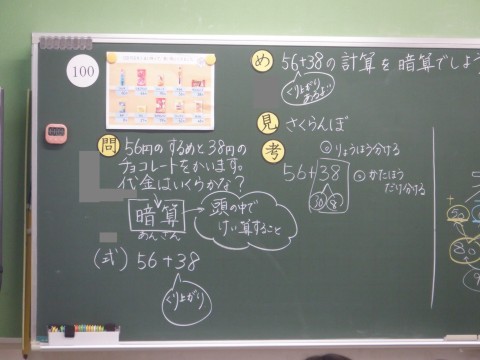 100
め 56+38の計算を暗算でしよう
くり上がり
見 さくらんぼ
問 56円のするめと38円の
チョコレートをかいます。
代金はいくらかな？
暗算
あんざん
頭の中で
けい算すること
(式) 56+38
くり上がり
考 りょうほう分ける
56+38
30 8
かたほう
だけ分ける
80